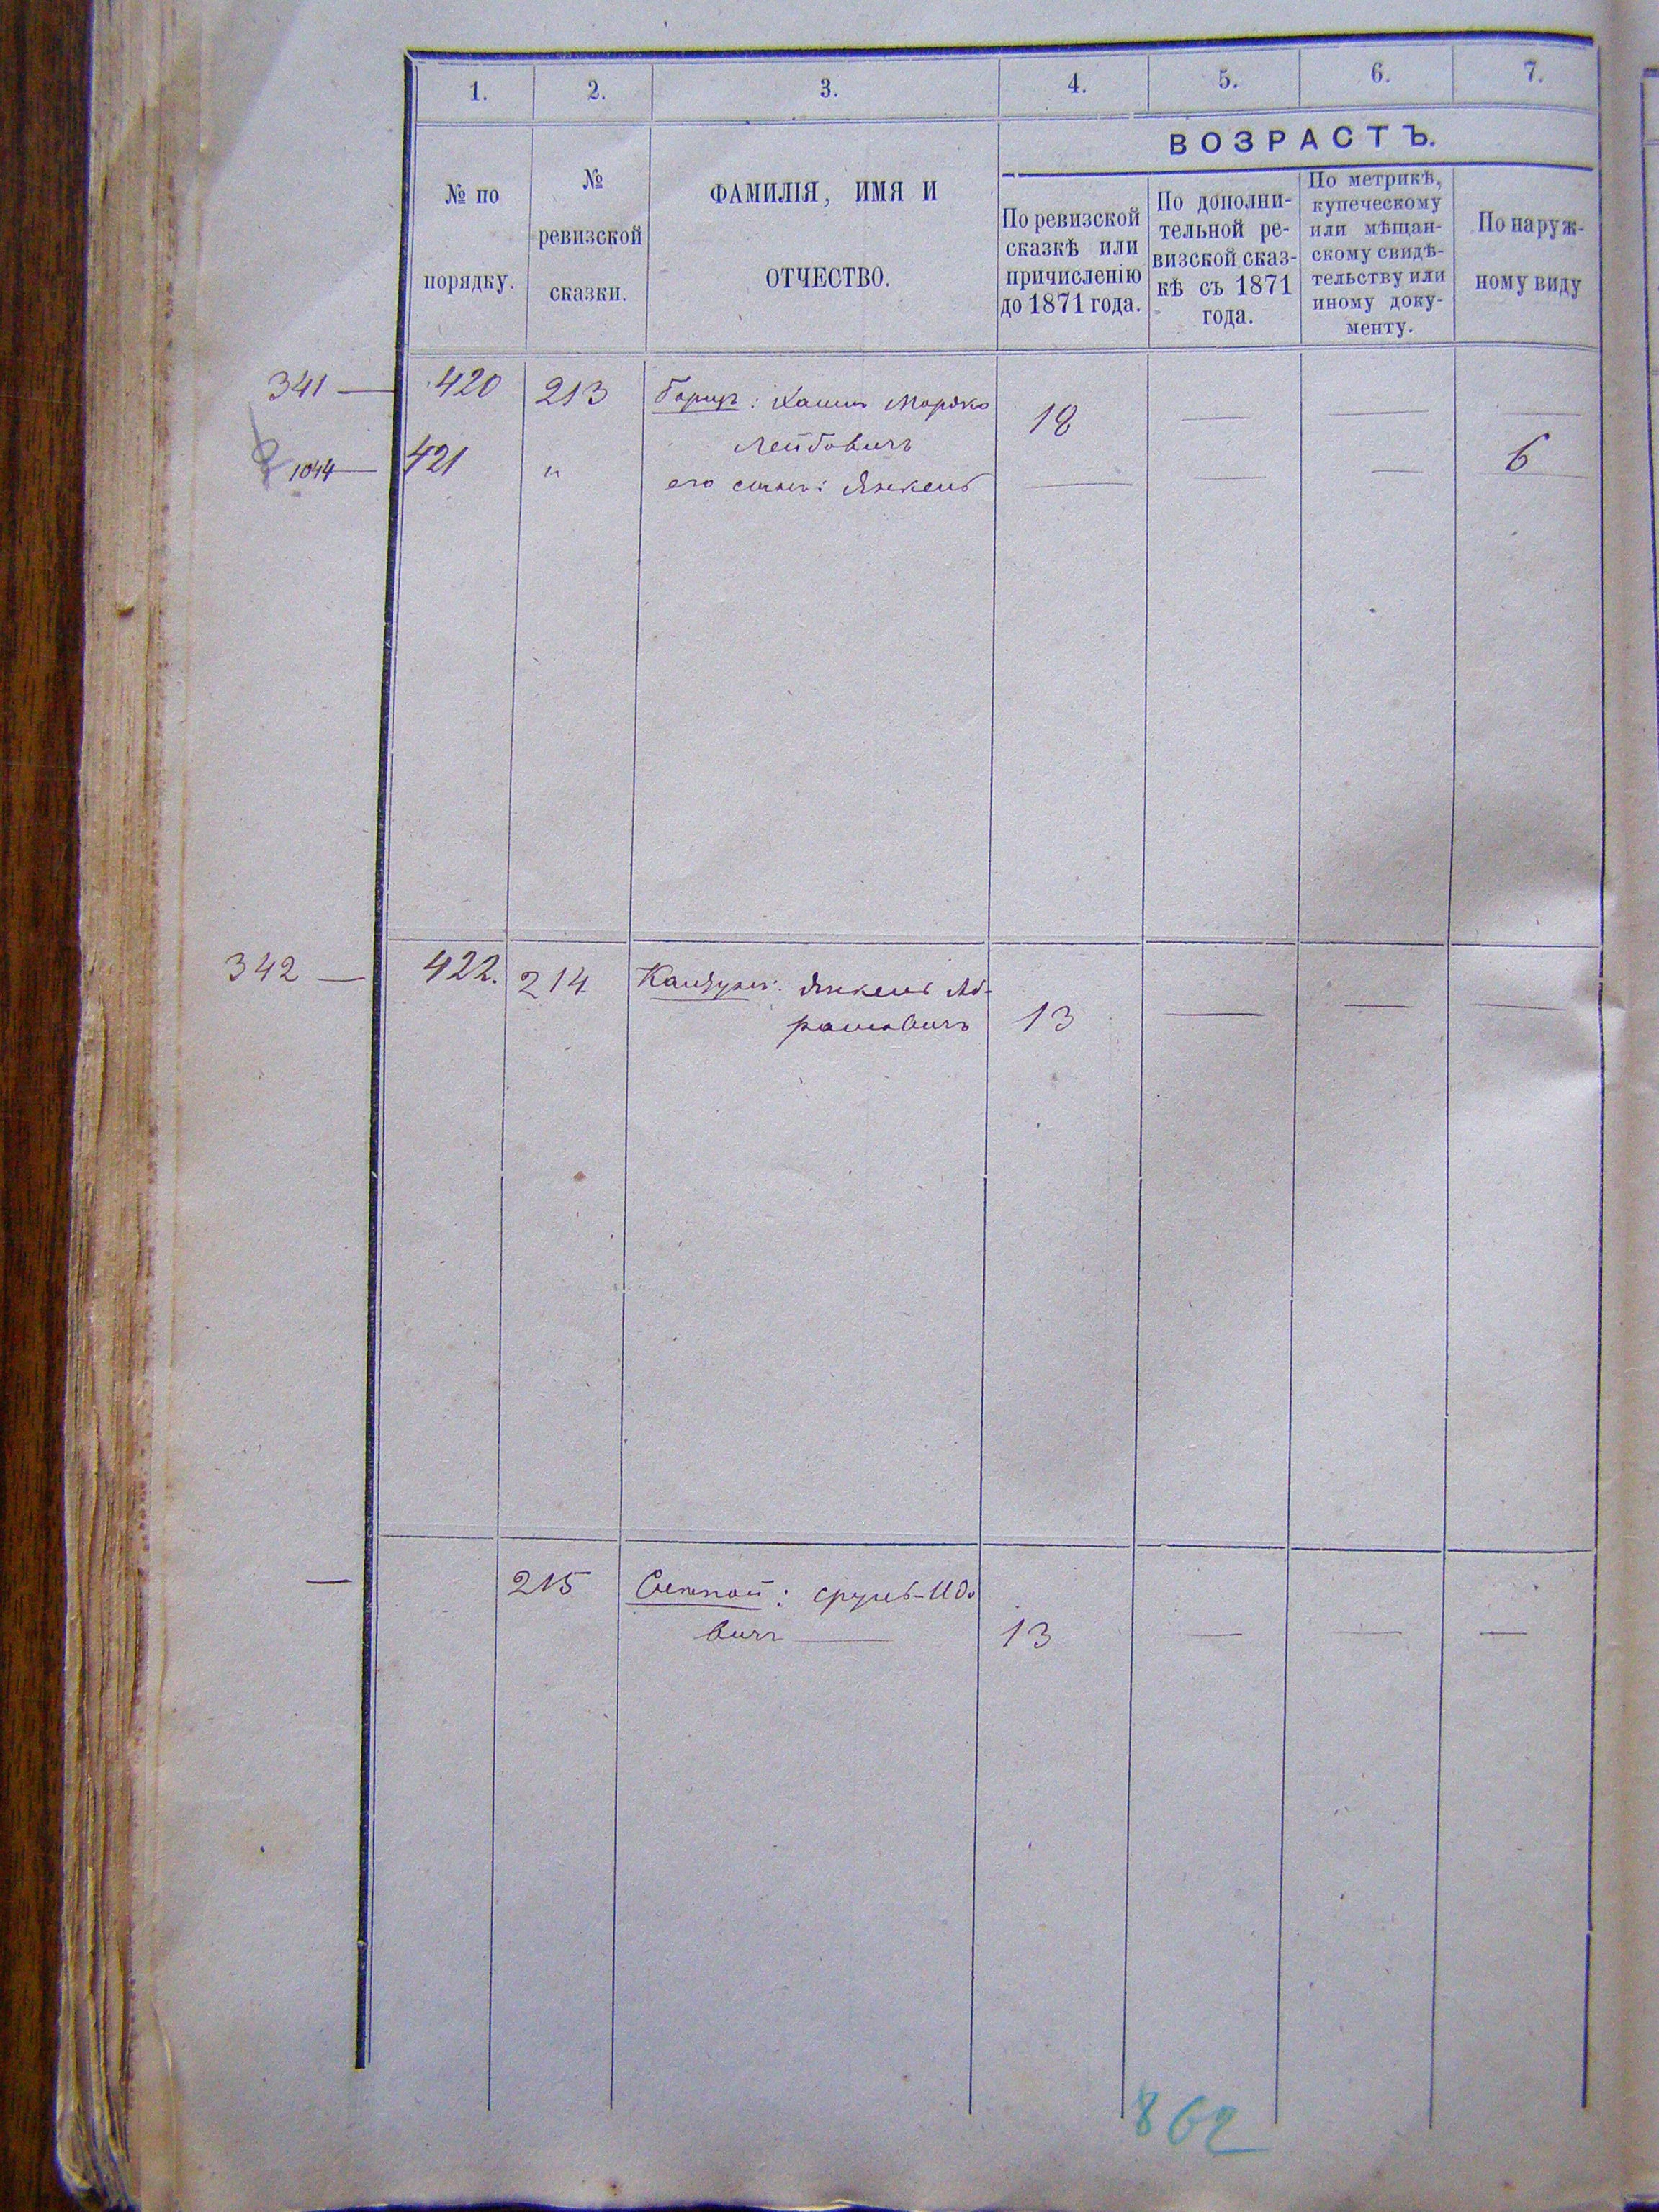 1. 2. 3. 4. 5. 6. 7.
№ по
порядку.
№
ревизской
сказки.
ФАМИЛІЯ, ИМЯ И
ОТЧЕСТВО.
ВОЗРАСТЪ.
По ревизской
сказкѣ или
причисленію
до 1871 года.
По дополни-
тельной ре-
визской сказ-
кѣ съ 1871
года.
По метрикѣ,
купеческому
или мѣщан-
скому свидѣ-
тельству или
иному доку-
менту.
По наруж-
ному виду
341 — 420 213 : Хаимъ Мордко 18 — — —
Лейбовичъ
1044 — 421 " его сынъ: Янкель — — — 6
342 — 422. 214 : Янкель Аб-
рамовичъ 13 — — —
— 215 : Сруль-Идо
вичъ — 13 — — —
862